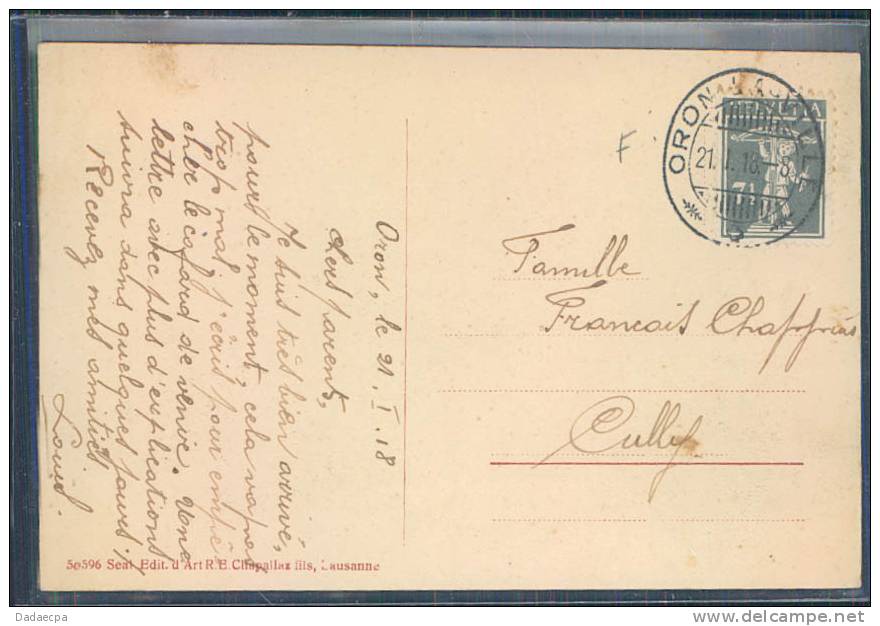 Oron, le 21. I. 18
Chers parents,
Je suis très bien arrivé,
pour le moment, cela va pas
trop mal, j'écris pour empê-
cher le cafard de venir. Une
lettre avec plus d'explications
suivra dans quelques jours.
Recevez mes amitiés
Louis.
HELVETIA
7½
ORON-LA-VILLE
21. I. 18. – 8
F
Famille
Francais Chappuis
Cully
50596 Seal Edit. d'Art R.E. Chapallaz fils, Lausanne
Dadaecpa
www.delcampe.net